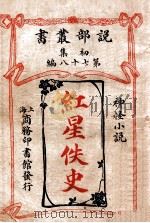 說部叢書
初集
第七十八編
神怪小說
紅星佚史
上海
商務印書館發行